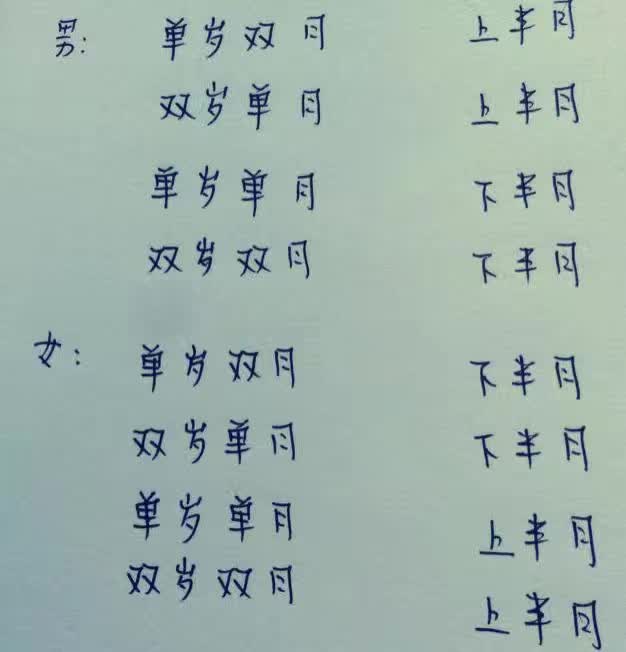 男: 单岁双月 上半月
双岁单月 上半月
单岁单月 下半月
双岁双月 下半月
女: 单岁双月 下半月
双岁单月 下半月
单岁单月 上半月
双岁双月 上半月